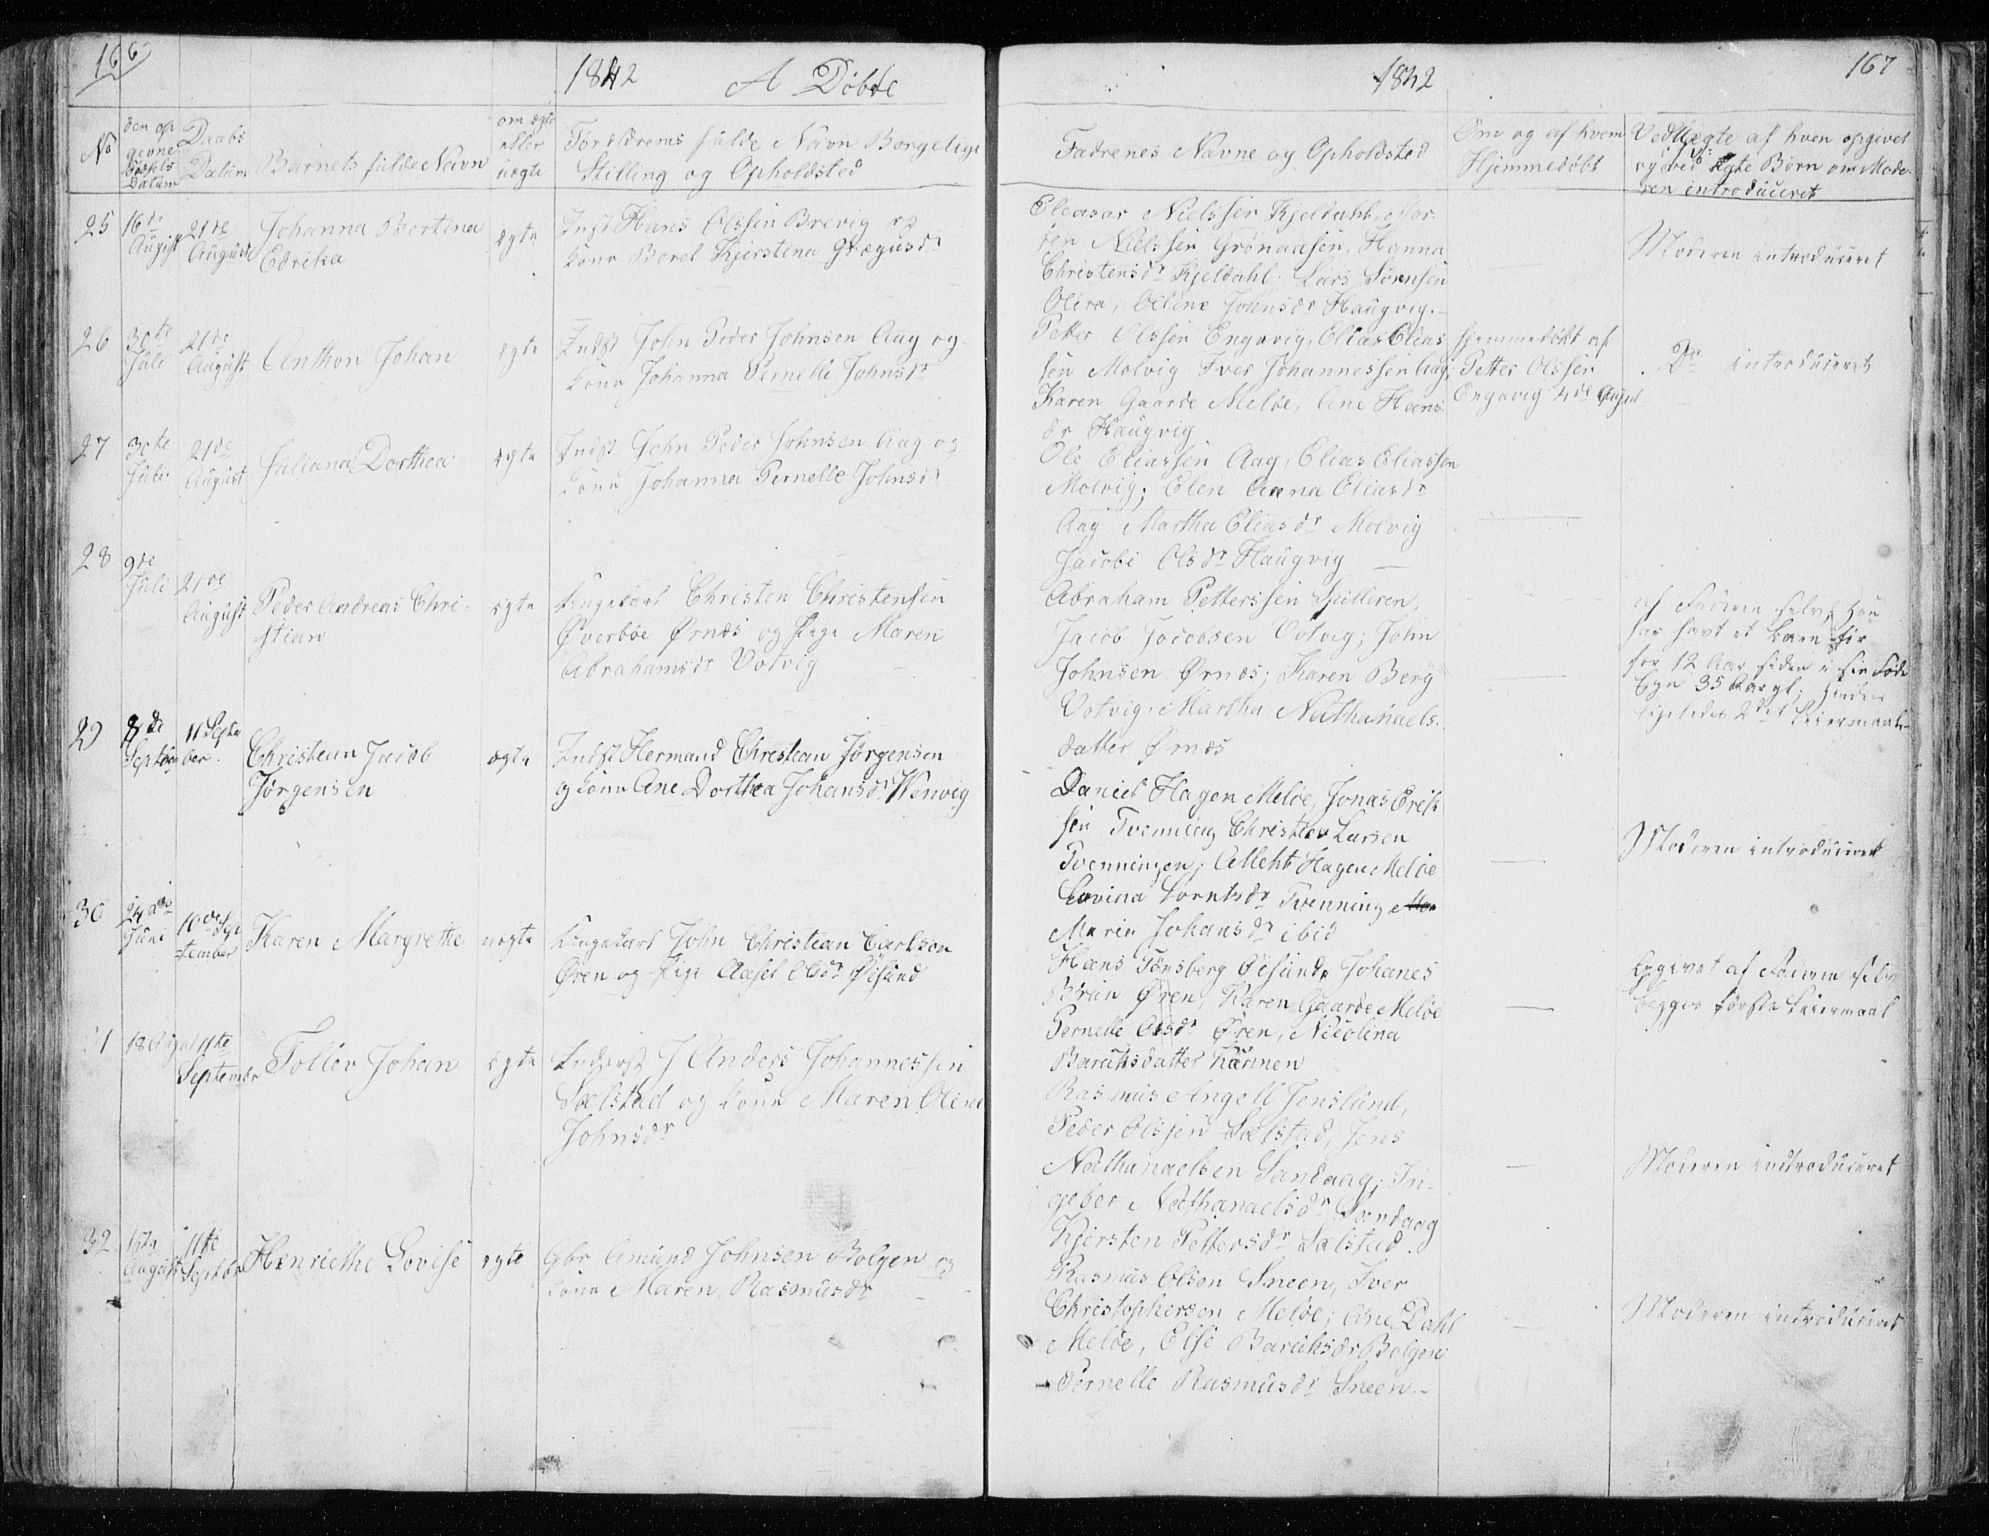 166
1842 A Døbte
No
den op
givne
Fødsels
Datum
Daabs
Datum
Barnets fulde Navn
om ægte
eller
uægte
Forældrenes fulde Navn Borgelige
Stilling og Opholdsted
25
16de
August
21de
August
Johanna Bertina
Edrika
ægte
Indst Hans Olssen Brevig og
Kone Beret Kjerstina
26
30te
Juli
21de
August
Anthon Johan
ægte
Indst John Peder Johnsen Aag og
Kone Johanna Pernelle Johnsdr
27
30te
Juli
21de
August
Juliana Dorthea
ægte
Indst John Peder Johnsen Aag og
Kone Johanna Pernelle Johnsdr
28
9de
Juli
21de
August
Peder Andreas Chri-
stian
Ungekarl Christen Christensen
Øverbøe Ørnæs og Pige Maren
Abrahamsdr Votvig
29
8de
Septbr
11 Septe
ber
Christian Jacob
Jørgensen
ægte
Indst Hermand Christian Jørgensen
og Kone Ane Dorthea Johansdr Wenvig
30
24de
Juni
10de Sep
tember
Karen Margrethe
uægte
Ungekarl John Christian Carlsen
Øren og Pige Aasel Olsdr Øisund
31
18 August
11te
September
Tollev Johan
ægte
Inderst J Anders Johannessen
Sælstad og Kone Maren Oline
Johnsdr
32
August
11te
Septbr
Henriethe Lovise
ægte
Gbr Amund Johnsen Bolgen og
Kone Maren Rasmusdr
1842
167
Fadrenes Navne og Opholdsted
Om og af hvem
Hjemmedøbt
Ved Uægte af hvem opgivet
og ved ægte Børn om Mode-
ren introduceret
Eleasar Nielssen Kjeldahl, Mor-
ten Nielssen Grønaasen, Hanna
Christensdr Kjeldahl. Lars Sørensen
Olina Johnsdr Haugvig.
Moderen introduceret
Petter Olssen Engavig, Elias Elias
sen Molvig Iver Johannessen Aag,
Karen Gaarde Meløe, Ane Hans
dr Haugvig
Hjemmedøbt af
Petter Olssen
Engavig 4de August
Do introduceret
Ole Eliassen Aag, Elias Eliassen
Molvig; Elen Anna Eliasdr
Aag Martha Eliasdr Molvig
Jacobi Olsdr Haugvig
Abraham Petterssen Spilleren,
Jacob Jacobsen Votvig; John
Johnsen Ørnæs; Karen Berg
Votvig. Martha Nathanaels-
datter Ørnæs
af Faderen selv; han
har havt et Barn før
for 12 Aar siden i sin Føde
Egn 35 Aar gl; hendes
ligeledes 2det Leiermaal
Daniel Hagen Meløe, Jonas Erik
sen Tvenning Christian Larsen
Tvenningen; Alleht Hagen Meløe
Lovina Torntsdr Tvenning
Maria Johansdr ibid
Moderen introduceret
Hans Tønsberg Øisund Johanes
Brun Øren, Karen Gaarde Meløe
Pernelle Olsdr Øren, Nicolina
Baruhsdatter
Opgivet af Faderen selv
begges første Leiermaal
Rasmus Angell Jenslund,
Peder Olssen Sælstad, Jens
Nathanaelsen Sandaag; In-
gebor Nathanaelsdr Sandaag
Kjersten Pettersdr Sælstad.
Moderen introduceret
Rasmus Olsen Sneen, Iver
Christophersen Meløe; Ane Dahl
Meløe, Else Baruhsdr Bolgen
Pernelle Rasmusdr Sneen.
Moderen introduceret